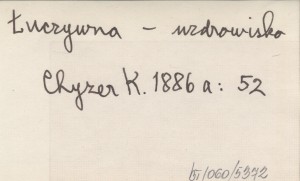 Łuczywna - uzdrowisko
Chyzer K. 1886 a: 52
5/060/5372